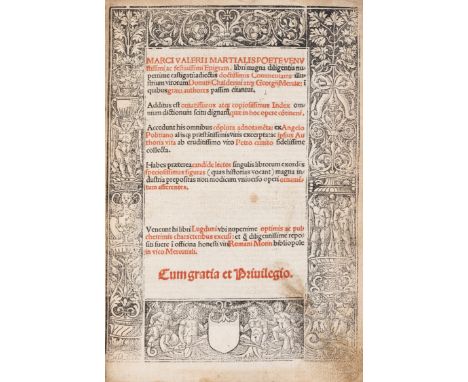 MARCI VALERII MARTIALIS POETE VENV
stissimi ac festiuissimi Epigram. libri magna diligentia nu
perrime castigati: adiectis doctissimis Commentariis illu
strium virorum Domitii Chalderini atq; Georgii Merulæ: i
quibus greci authores passim citantur.
Additus est ornatissimus atq; copiosissimus Index om
nium dictionum scitu dignarũ, que in hoc opere cõtinent̃.
Accedunt his omnibus cõplura adnotamẽta: ex Angelo
Politiano aliisq; præstãtissimis viris excerpta: ac ipsius Au
thoris vita ab eruditissimo viro Petro crinito fidelissime
collecta.
Habes præterea candide lector singulis librorum exordiis
speciosissimas figuras (quas historias vocant) magna in
dustria prepositas non modicum vniuerso operi ornamẽ
tum afferentes.
Veneunt hi libri Lugduni vbi nuperrime optimis ac pul
cherrimis characteribus excusi: et q̃ diligentissime repo
siti fuere i officina honesti viri Romani Morin bibliopole
in vico Mercuriali.
Cum gratia et Priuilegio.